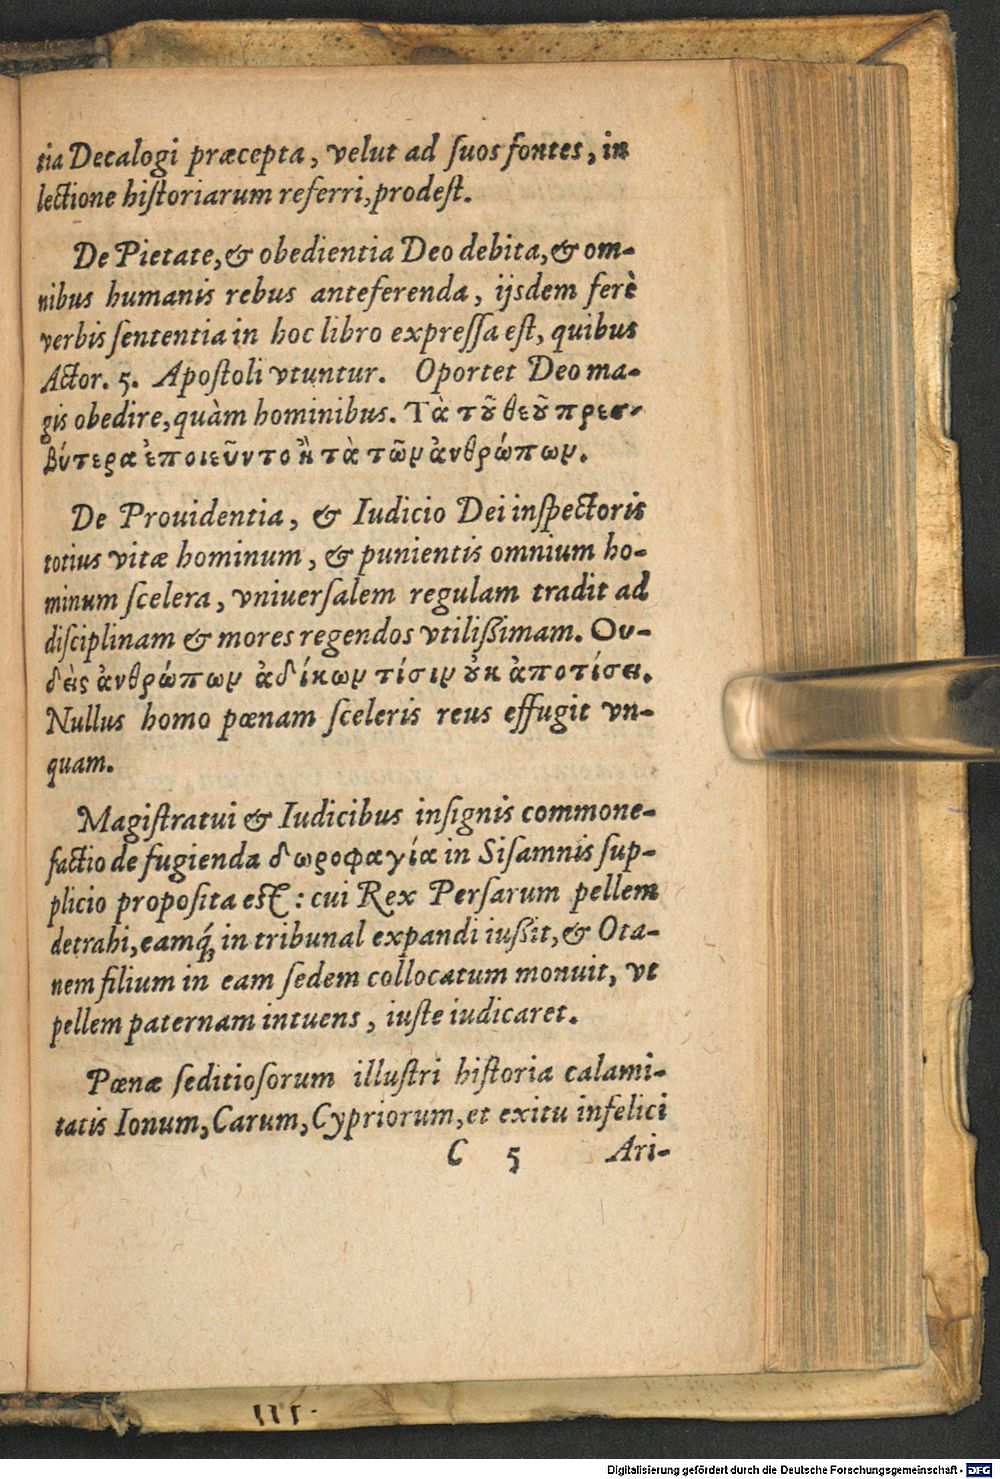 tia Decalogi præcepta, velut ad ſuos fontes, in
lectione hiſtoriarum referri, prodeſt.
De Pietate, & obedientia Deo debita, & om-
nibus humanis rebus anteferenda, ijsdem ferè
verbis ſententia in hoc libro expreſſa eſt, quibus
Actor. 5. Apoſtoli vtuntur. Oportet Deo ma-
gis obedire, quàm hominibus. Τὰ τȣ͂ θεȣ͂ πρεσ-
βύτερα ἐποιεῦντο ἢ τὰ τῶν ἀνθρώπων.
De Prouidentia, & Iudicio Dei inſpectoris
totius vitæ hominum, & punientis omnium ho-
minum ſcelera, vniuerſalem regulam tradit ad
diſciplinam & mores regendos vtilißimam. Ου-
δεὶς ἀνθρώπων ἀδίκων τίσιν ȣ̓κ ἀποτίσει.
Nullus homo pœnam ſceleris reus effugit vn-
quam.
Magiſtratui & Iudicibus inſignis commone-
factio de fugienda δωροφαγία in Siſamnis ſup-
plicio propoſita eſt: cui Rex Perſarum pellem
detrahi, eamq́; in tribunal expandi iußit, & Ota-
nem filium in eam ſedem collocatum monuit, vt
pellem paternam intuens, iuſte iudicaret.
Pœnæ ſeditioſorum illuſtri hiſtoria calami-
tatis Ionum, Carum, Cypriorum, et exitu infelici
C 5 Ari-
III.
Digitalisierung gefördert durch die Deutsche Forschungsgemeinschaft - DFG